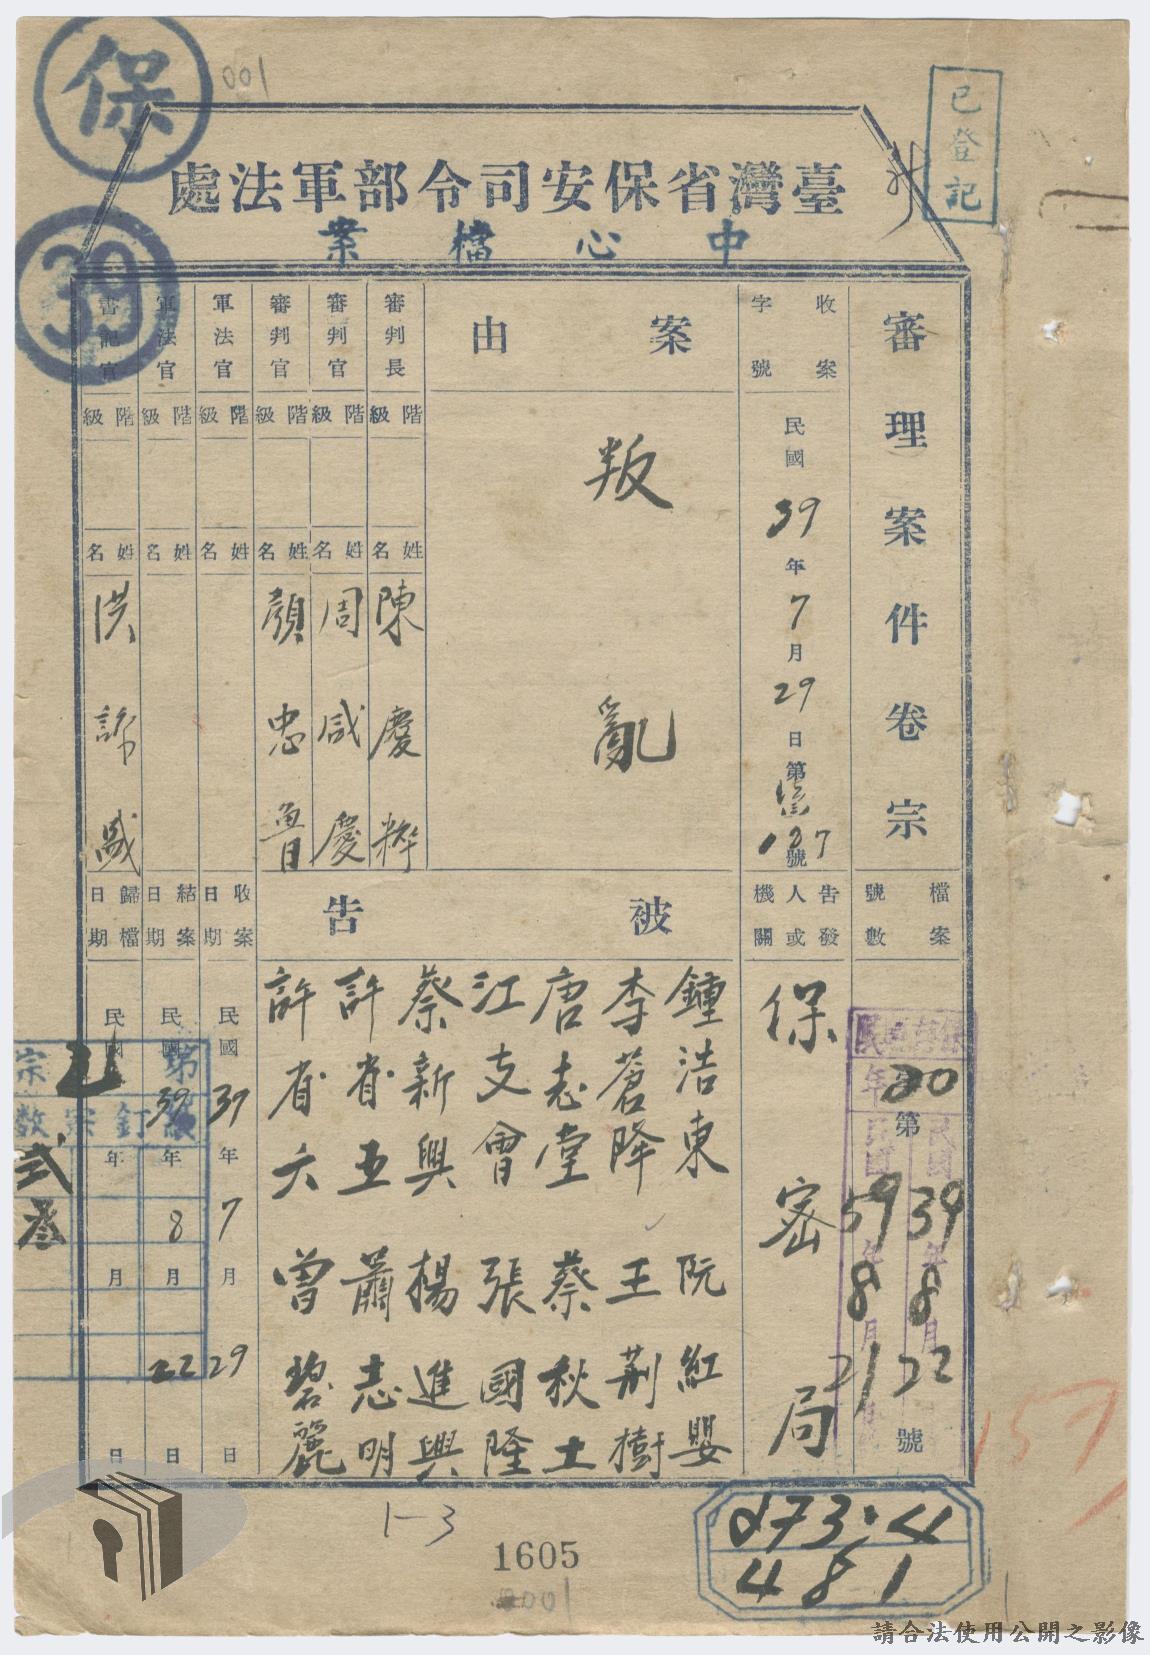 保
001
已登記
臺灣省保安司令部軍法處
中心檔案
39
審理案件卷宗
檔案號數
第20號
收案字號
民國39年7月29日第
187號
告發人或機關
保密局
案由
叛亂
被告
鍾浩東 阮紅嬰
李蒼降 王荊樹
唐志堂 蔡秋土
江支會 張國隆
蔡新興 楊進興
許省五 蕭志明
許省六 曾碧麗
審判長
階級
姓名
陳慶粹
審判官
階級
姓名
周咸慶
審判官
階級
姓名
顏忠魯
軍法官
階級
姓名
軍法官
階級
姓名
書記官
階級
姓名
洪
收案日期
民國39年7月29日
結案日期
民國39年8月22日
歸檔日期
民國
年
月
日
民國39年8月22
民國39年8月21
第
宗
釘宗數
弍
叁
157
1-3
1605
0001
273.4
481
請合法使用公開之影像